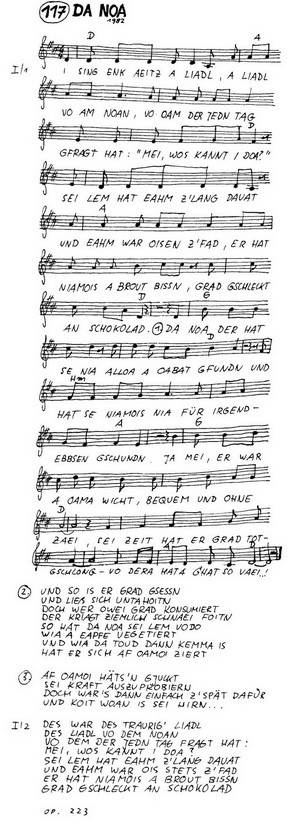 117 DA NOA
1982
D A
I/1 I SING ENK AEITZ A LIADL, A LIADL
VO AM NOAN, VO OAM DER JEDN TAG
D
GFRAGT HAT: "MEI, WOS KANNT I DOA?"
SEI LEM HAT EAHM Z'LANG DAUAT
A
UND EAHM WAR OISEN Z'FAD, ER HAT
NIAMOIS A BROUT BISSN, GRAD GSCHLECKT
D G
AN SCHOKOLAD. ① DA NOA, DER HAT
D
SE NIA ALLOA A OABAT GFUNDN UND
Hm
HAT SE NIAMOIS NIA FÜR IRGEND-
A G
EBBSEN GSCHUNDN. JA MEI, ER WAR
A OAMA WICHT, BEQUEM UND OHNE
D
ZAEI, SEI ZEIT HAT ER GRAD TOT-
A D
GSCHLONG - VO DERA HAT A GHAT SO VAEI..!
② UND SO IS ER GRAD GSESSN
UND LIES SICH UNTAHOITN
DOCH WER OWEI GRAD KONSUMIERT
DER KRIAGT ZIEMLICH SCHNAEI FOITN
SO HAT DA NOA SEI LEM VODO
WIA A EAPFE VEGETIERT
UND WIA DA TOUD DANN KEMMA IS
HAT ER SICH AF OAMOI ZIERT
③ AF OAMOI HÄTS'N GJUCKT
SEI KRAFT AUSZUPROBIERN
DOCH WAR'S DANN EINFACH Z'SPÄT DAFÜR
UND KOIT WOAN IS SEI HIRN...
I/2 DES WAR DES TRAURIG' LIADL
DES LIADL VO DEM NOAN
VO DEM DER JEDN TAG FRAGT HAT:
MEI, WOS KANNT I DOA?
SEI LEM HAT EAHM Z'LANG DAUAT
UND EAHM WAR OIS STETS Z'FAD
ER HAT NIAMOIS A BROUT BISSN
GRAD GSCHLECKT AN SCHOKOLAD
OP. 223